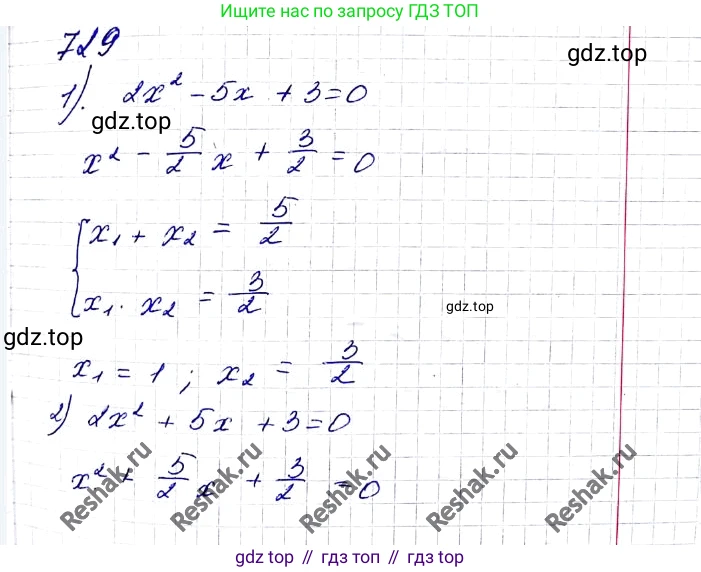 Ищите нас по запросу ГДЗ ТОП
729
gdz.top
1). 2x² - 5x + 3 = 0
gdz.top
x² - 5/2 x + 3/2 = 0
{ x₁ + x₂ = 5/2
x₁ · x₂ = 3/2
gdz.top
gdz.top
x₁ = 1 ; x₂ = 3/2
2) 2x² + 5x + 3 = 0
x² + 5/2 x + 3/2 = 0
Reshak.ru Reshak.ru Reshak.ru Reshak.ru Reshak.ru
gdz top // гдз топ // gdz top